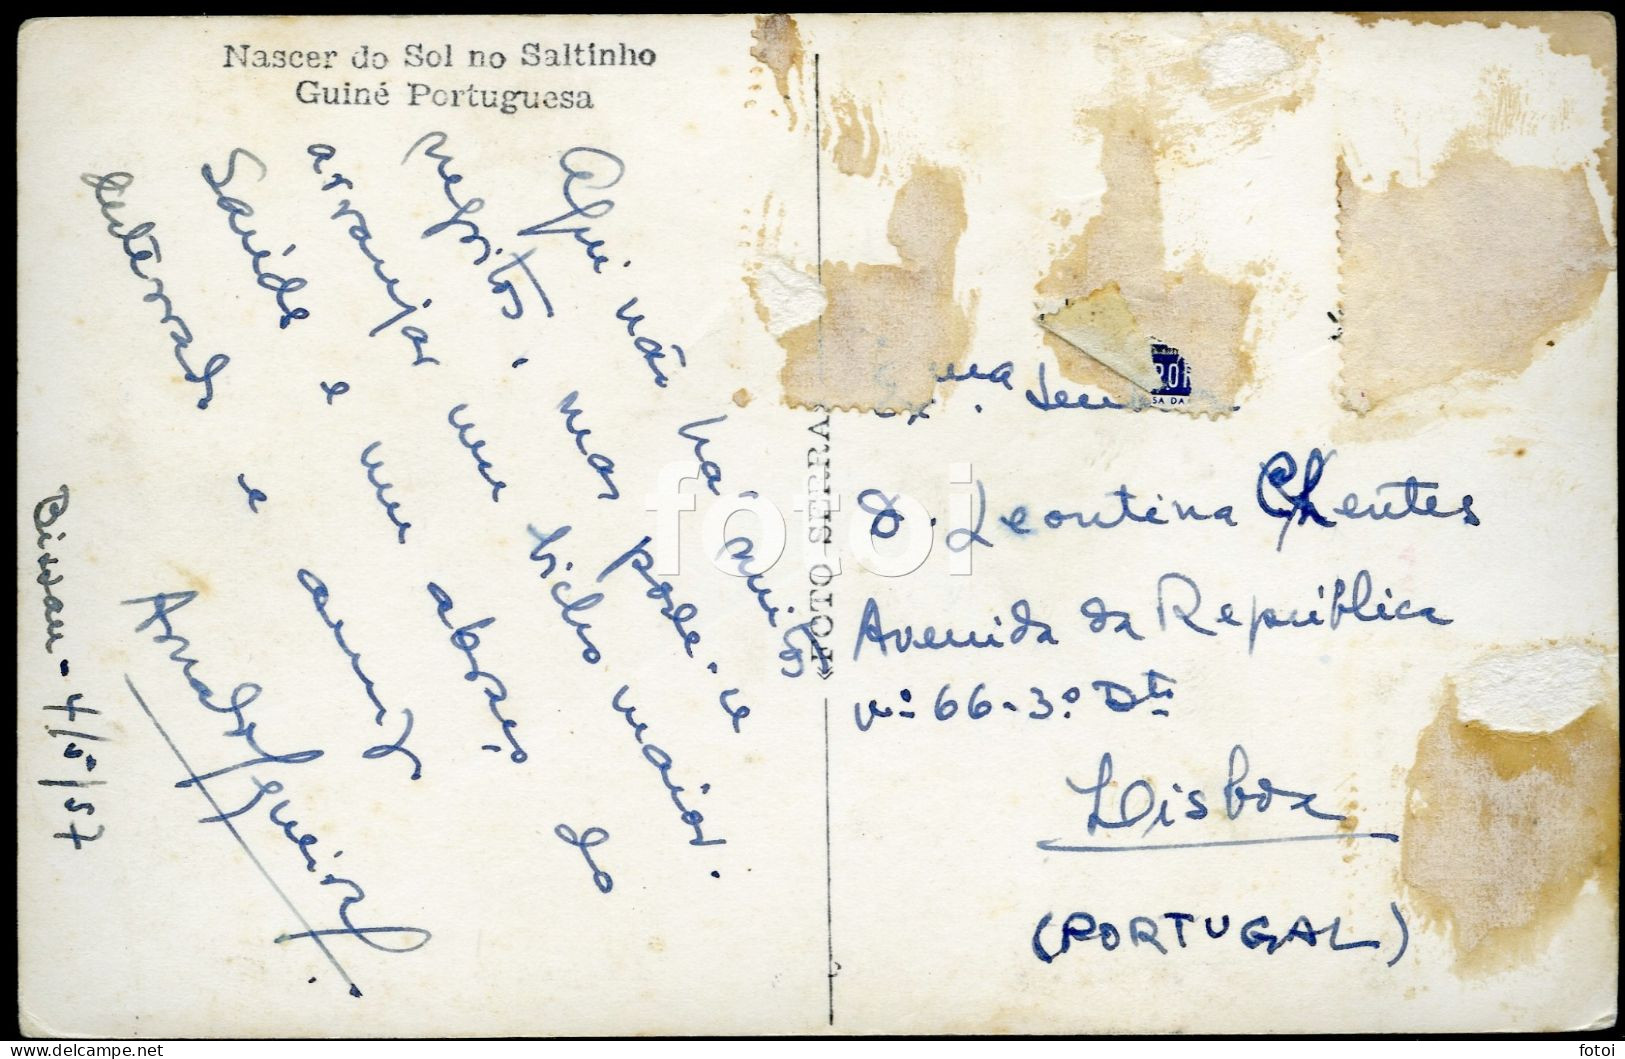 Nascer do Sol no Saltinho
Guiné Portuguesa
Aqui não há muitos
mas pode-se
arranjar um bicho maior.
Saúde e um abraço do
e amigo
Bissau - 4/5/57
«FOTO SERRA
Ex.ma Senhora
D. Leontina
Avenida da República
nº 66-3.º Dto
Lisboa
(PORTUGAL)
SA DA
fotoi
www.delcampe.net
fotoi